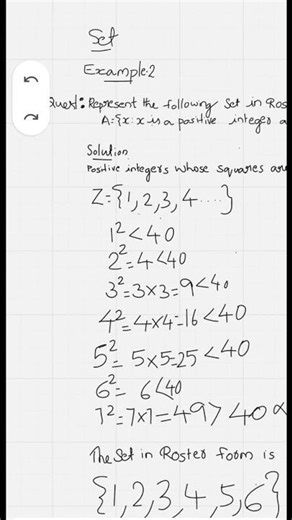 Set
Example-2
Quest: Represent the following Set in Ros
A={x: x is a positive integer a
Solution
Positive integers whose squares are
Z={1,2,3,4....}
1²<40
2²=4<40
3²=3×3=9<40
4²=4×4=16<40
5²= 5×5=25<40
6²= 6<40
7²=7×7=49>40
The Set in Roster form is
{1,2,3,4,5,6}